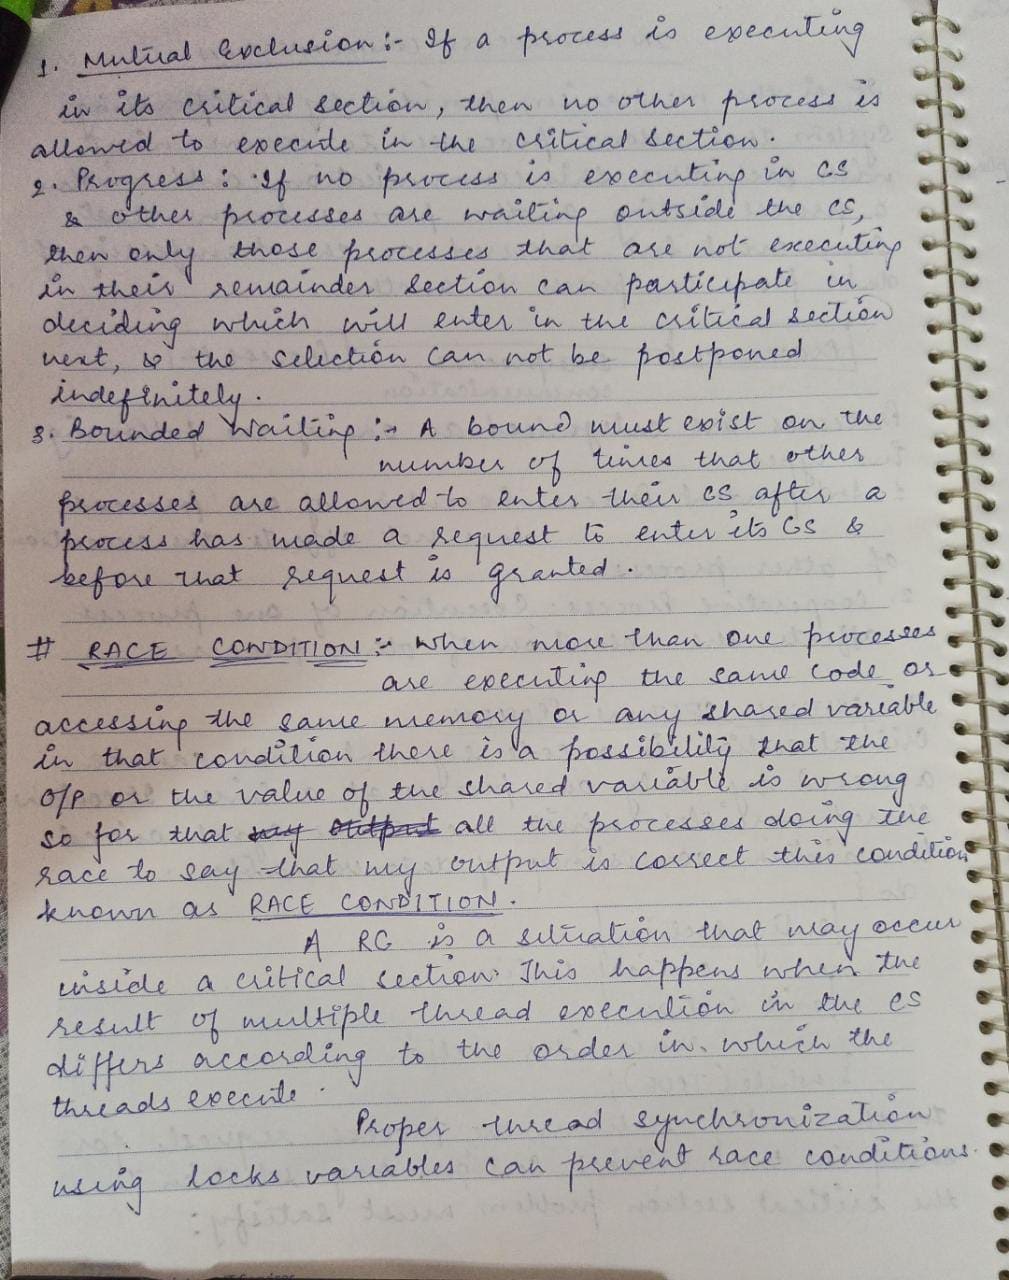 1. Mutual Exclusion :- If a process is executing
in its critical section, then no other process is
allowed to execute in the critical section.
2. Progress : If no process is executing in CS
& other processes are waiting outside the CS,
then only those processes that are not executing
in their remainder section can participate in
deciding which will enter in the critical section
next, & the selection can not be postponed
indefinitely.
3. Bounded Waiting :- A bound must exist on the
number of times that other
processes are allowed to enter their CS after a
process has made a request to enter its CS &
before that request is granted.
# RACE CONDITION :- When more than one processes
are executing the same code or
accessing the same memory or any shared variable
in that condition there is a possibility that the
O/P or the value of the shared variable is wrong
so for that my output all the processes doing the
race to say that my output is correct this condition
known as RACE CONDITION.
A RC is a situation that may occur
inside a critical section. This happens when the
result of multiple thread execution in the CS
differs according to the order in which the
threads execute.
Proper thread synchronization
using locks variables can prevent race conditions.